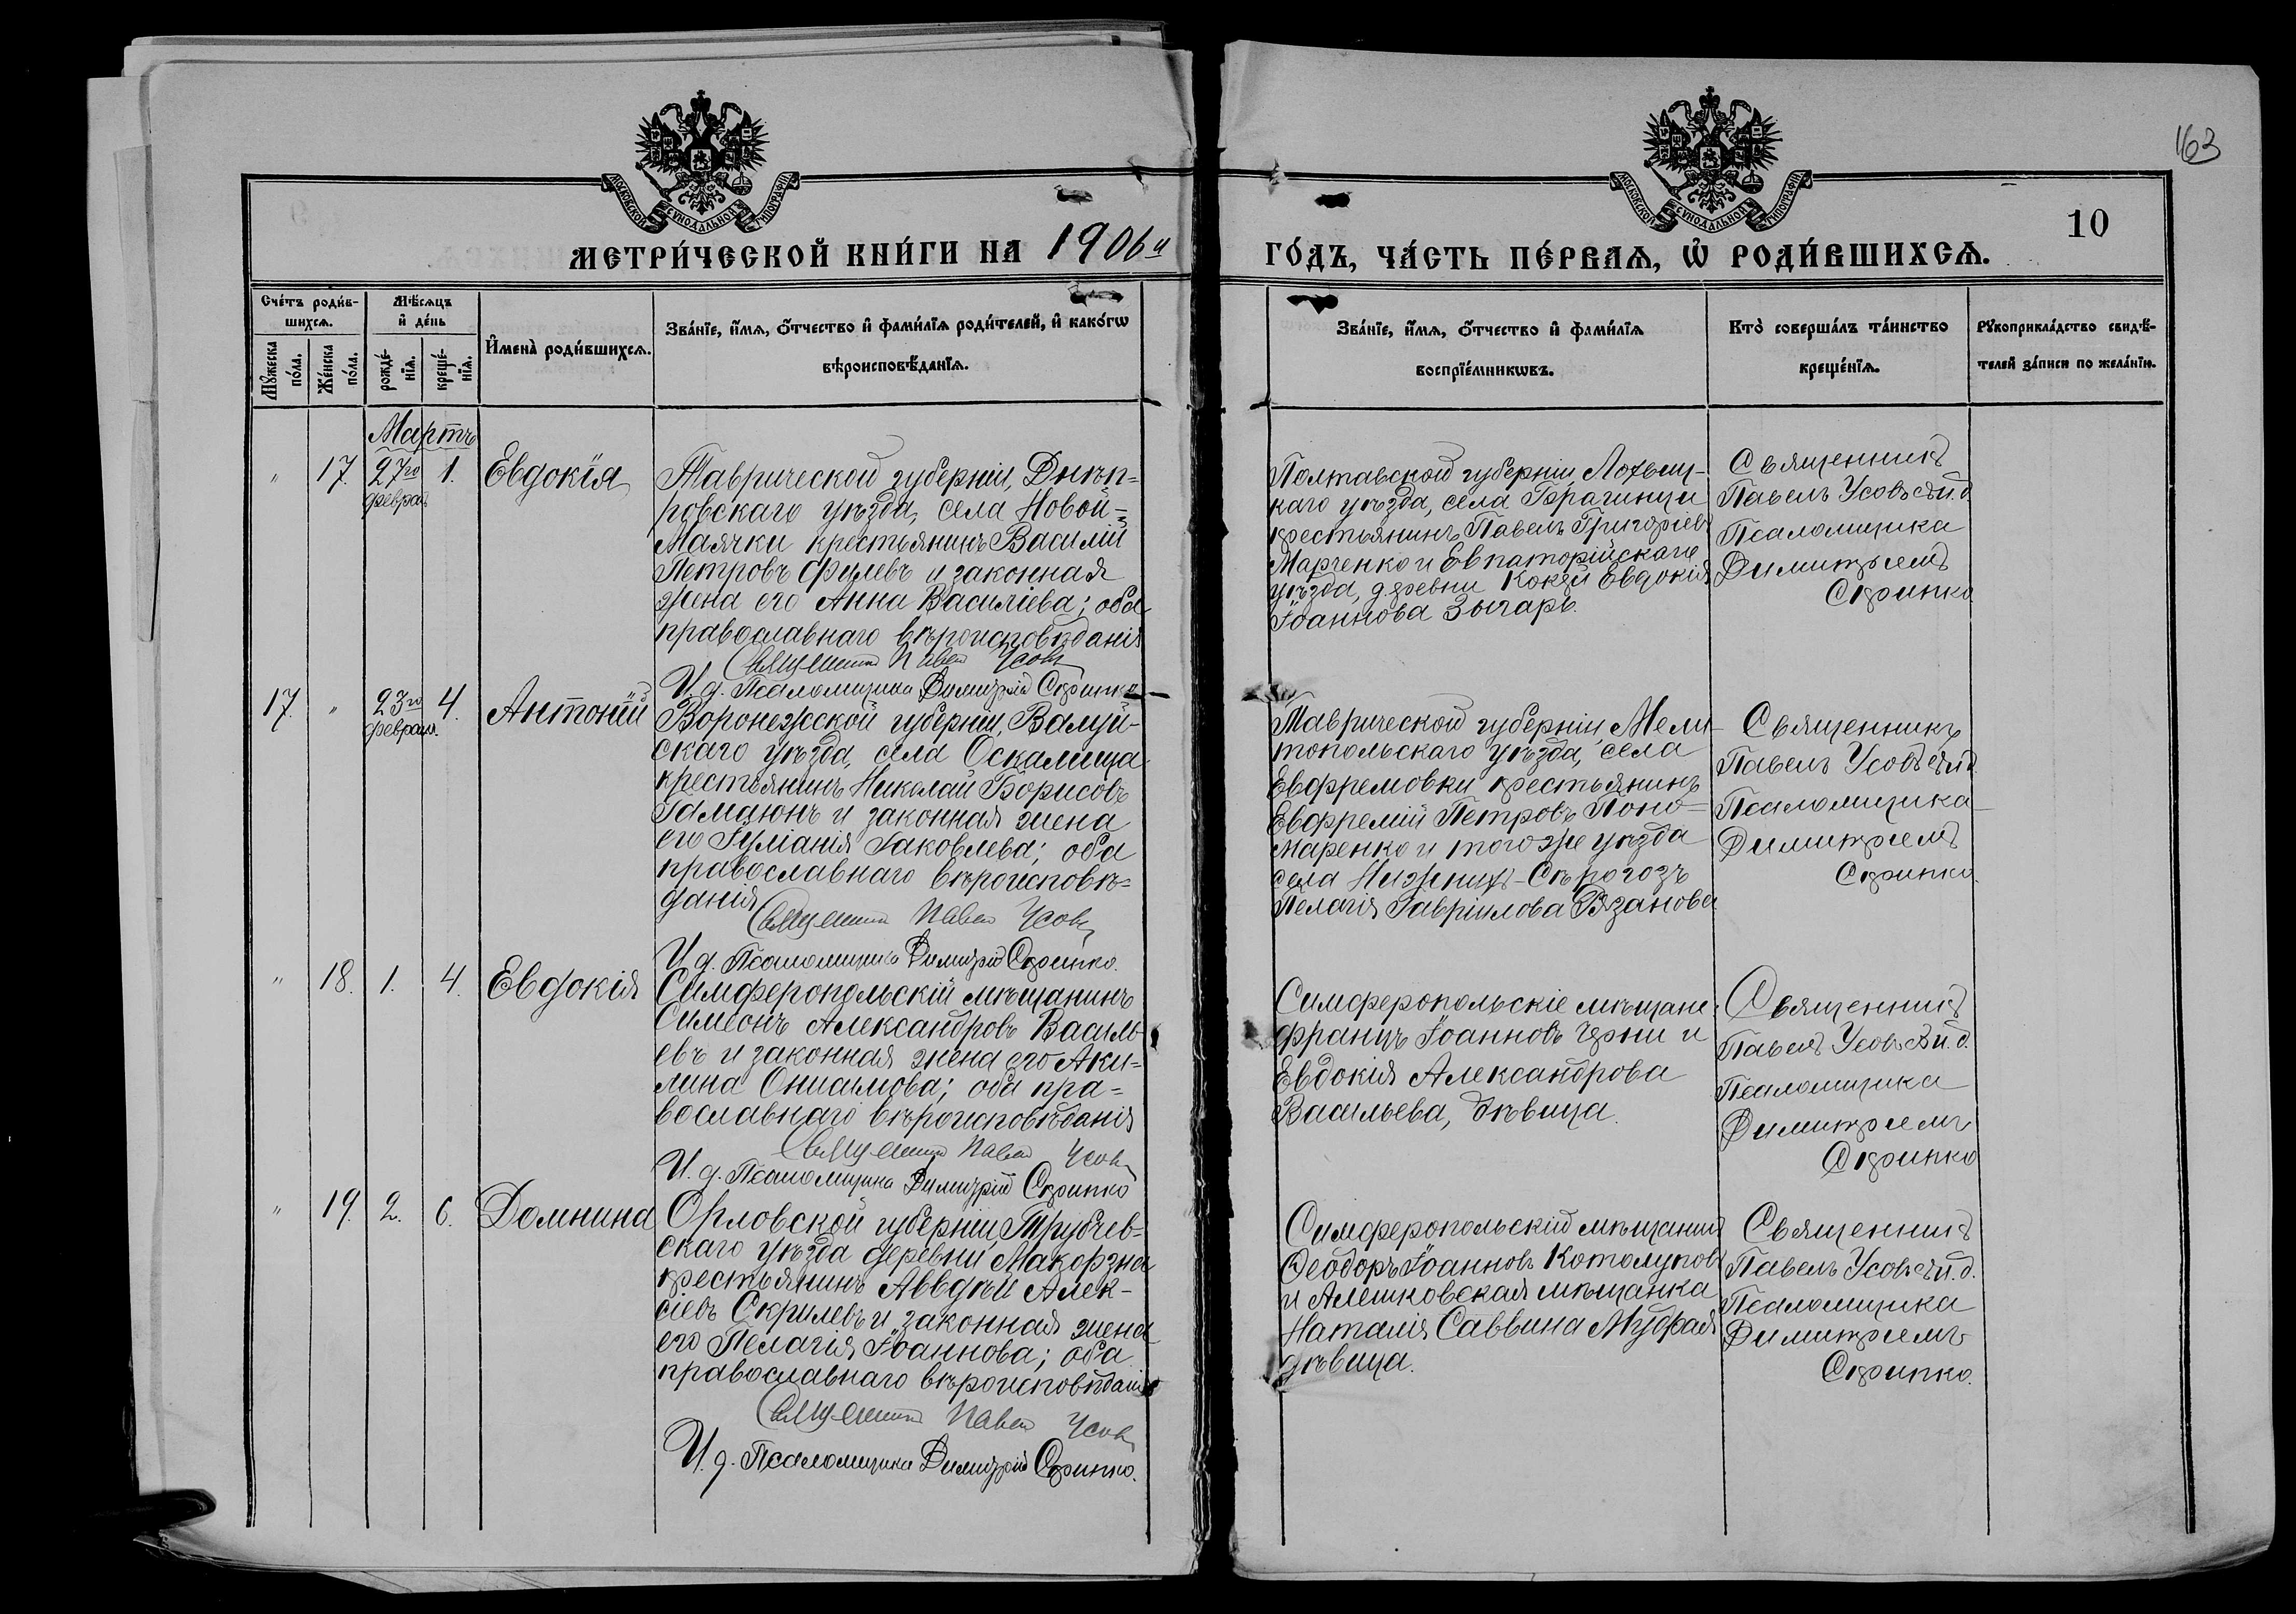 163
МОСКОВСКОЙ СУНОДАЛЬНОЙ ТИПОГРАФІИ
МОСКОВСКОЙ СУНОДАЛЬНОЙ ТИПОГРАФІИ
10
МЕТРИ́ЧЕСКОЙ КНИ́ГИ НА 1906й
ГО́ДЪ, ЧА́СТЬ ПЕ́РВАѦ, Ѽ РОДИ́ВШИХСѦ.
Сче́тъ роди́в-
шихсѧ.
Мꙋ́жеска по́ла.
Же́нска по́ла.
Мѣ́сѧцъ
и҆ де́нь
рожде́-
нїѧ.
креще́-
нїѧ.
И҆мена̀ роди́вшихсѧ.
Зва́нїе, и҆́мѧ, ѻ҆́тчество и҆ фами́лїѧ роди́телей, и҆ како́гѡ
вѣроисповѣ́данїѧ.
Зва́нїе, и҆́мѧ, ѻ҆́тчество и҆ фами́лїѧ
воспрїе́мникѡвъ.
Кто̀ соверша́лъ та́инство
креще́нїѧ.
Рꙋкоприкла́дство свидѣ́-
телей за́писи по жела́нїю.
Мартъ
" 17. 27го 1. Евдокія
феврал.
Таврической губерніи, Днѣп=
ровскаго уѣзда, села Новой=
Маячки крестьянинъ Василій
Петровъ Филевъ и законная
жена его Анна Василіева; оба
православнаго вѣроисповѣданія
Священникъ Павелъ Усовъ
И. д. Псаломщика Димитрій Скрипко
Полтавской губерніи, Лохвиц-
каго уѣзда, села Брагинци
крестьянинъ Павелъ Григоріевъ
Марченко и Евпаторійскаго
уѣзда, деревни Кокей Евдокія
Іоаннова Зычарь.
Священникъ
Павелъ Усовъ съ и. д.
Псаломщика
Димитріемъ
Скрипко
17. " 23го 4. Антоній
феврал.
Воронежской губерніи, Валуй-
скаго уѣзда, села Оскалища
крестьянинъ Николай Борисовъ
Гамаюнъ и законная жена
его Іуліанія Іаковлева; оба
православнаго вѣроисповѣ=
данія
Священникъ Павелъ Усовъ
И. д. Псаломщика Димитрій Скрипко.
Таврической губерніи, Мели-
топольскаго уѣзда, села
Евфремовки крестьянинъ
Евфремій Петровъ Поно=
маренко и того же уѣзда
села Нижнихъ-Сѣрогозъ
Пелагія Гавріилова Рязанова
Священникъ
Павелъ Усовъ съ и. д.
Псаломщика
Димитріемъ
Скрипко.
" 18. 1. 4. Евдокія
Симферопольскій мѣщанинъ
Симеонъ Александровъ Василь
евъ и законная жена его Аки=
лина Онисимова; оба пра=
вославнаго вѣроисповѣданія
Священникъ Павелъ Усовъ
И. д. Псаломщика Димитрій Скрипко
Симферопольскіе мѣщане:
Францъ Іоанновъ Черни и
Евдокія Александрова
Васильева, дѣвица.
Священникъ
Павелъ Усовъ съ и. д.
Псаломщика
Димитріемъ
Скрипко
" 19. 2. 6. Домнина
Орловской губерніи, Трубчев-
скаго уѣзда деревни Макорзна
крестьянинъ Аввдѣй Алек-
сіевъ Скрилевъ и законная жена
его Пелагія Іоаннова; оба
православнаго вѣроисповѣданія
Священникъ Павелъ Усовъ
И. д. Псаломщика Димитрій Скрипко.
Симферопольскій мѣщанинъ
Ѳеодоръ Іоанновъ Котолуповъ
и Алешковская мѣщанка
Наталія Саввина Мудрая
дѣвица.
Священникъ
Павелъ Усовъ съ и. д.
Псаломщика
Димитріемъ
Скрипко.